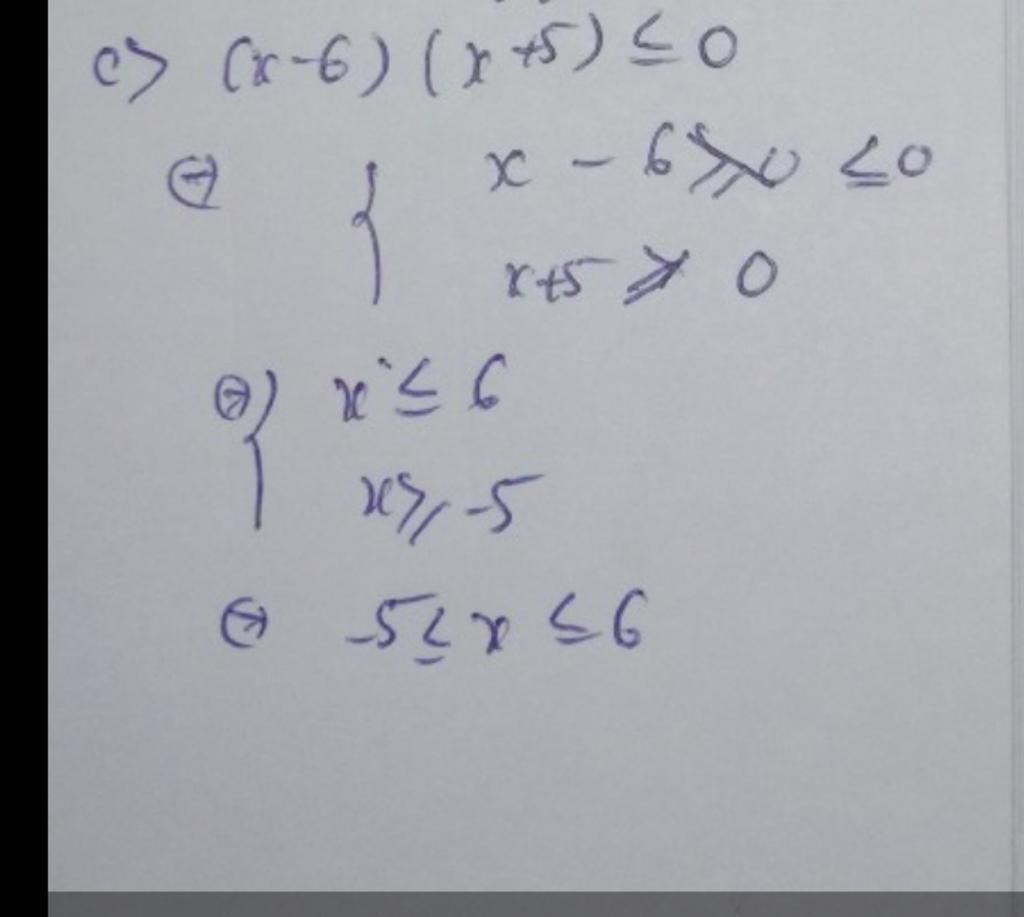 c> (x-6) (x+5) ≤ 0
⇔ { x - 6 ≤ 0
x+5 ≥ 0
⇔ { x ≤ 6
x ≥ -5
⇔ -5 ≤ x ≤ 6